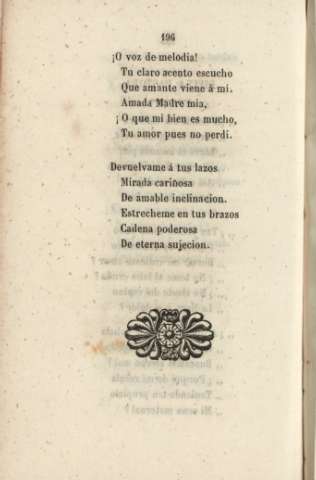 196
¡O voz de melodia!
Tu claro acento escucho
Que amante viene á mi.
Amada Madre mia,
¡O que mi bien es mucho,
Tu amor pues no perdi.
Devuelvame á tus lazos
Mirada cariñosa
De amable inclinacion.
Estrecheme en tus brazos
Cadena poderosa
De eterna sujecion.